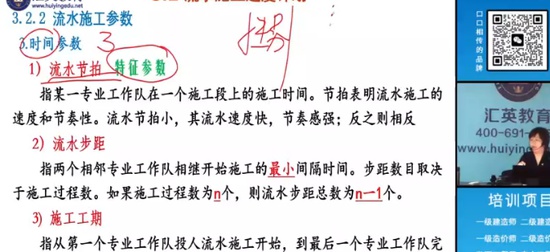 www.huiyingedu.net
3.2.2 流水施工参数
3.时间参数 3
1) 流水节拍 特征参数
指某一专业工作队在一个施工段上的施工时间。节拍表明流水施工的
速度和节奏性。流水节拍小，其流水速度快，节奏感强；反之则相反
2) 流水步距
指两个相邻专业工作队相继开始施工的最小间隔时间。步距数目取决
于施工过程数。如果施工过程数为n个，则流水步距总数为n一1个。
3) 施工工期
指从第一个专业工作队投人流水施工开始，到最后一个专业工作队完
口口相传的品牌
汇英教育
400-691-
www.huiying
培训项目
一级建造师 二级建
一级造价师 二级造